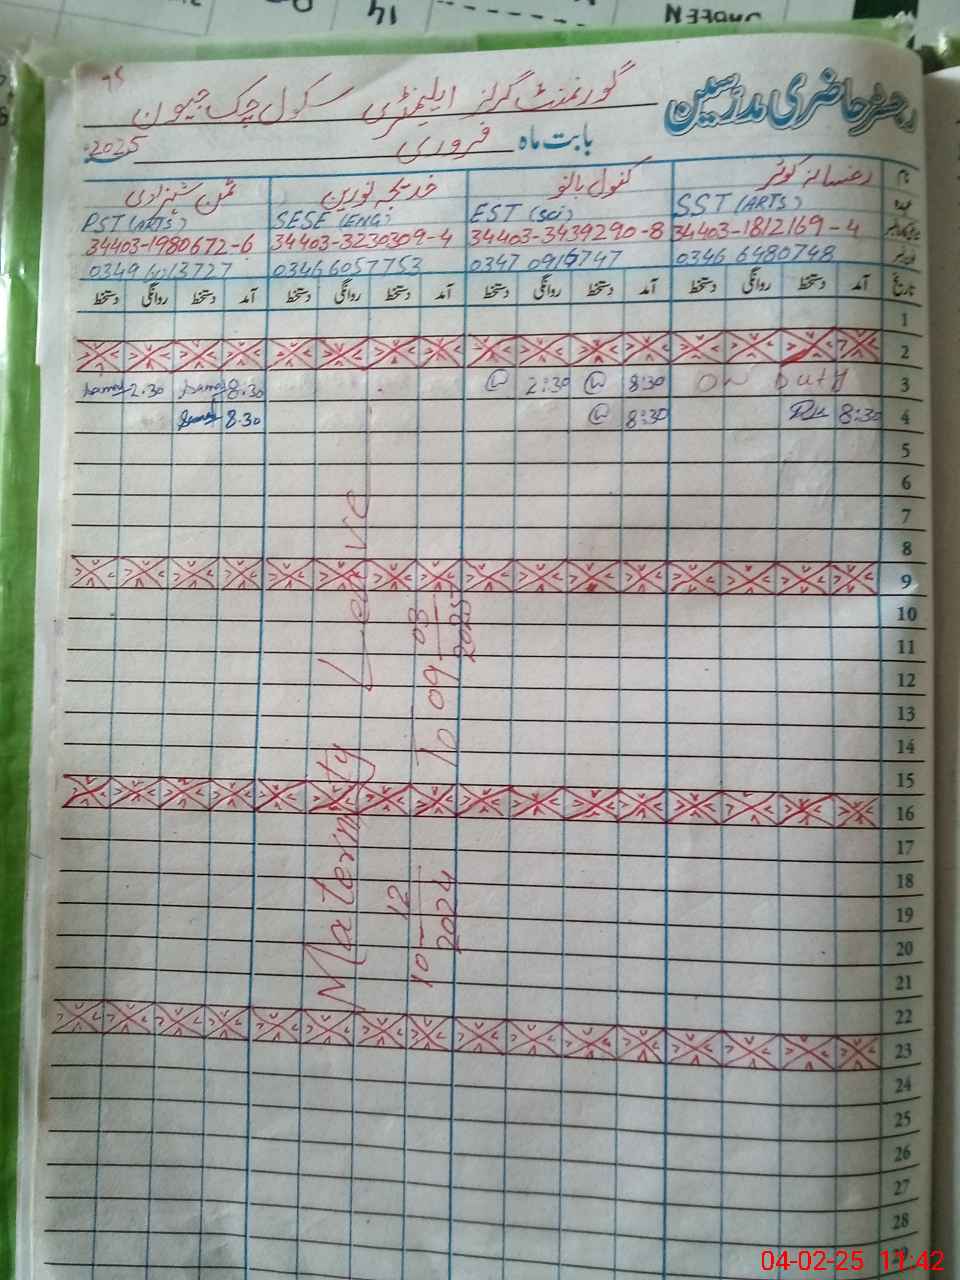 رجسٹر حاضری مدرسین
گورنمنٹ گرلز ایلیمنٹری سکول چک جیون
بابت ماہ فروری 2025
نام رخسانہ کوثر کنول بانو خدیجہ نورین ثمن شہزادی
عہدہ SST (ARTS) EST (Sci) SESE (ENG) PST (ARTS)
34403-1812169-4 34403-3439290-8 34403-3230309-4 34403-1980672-6
فون نمبر 0346 6480748 0347 0915747 0346 6057753 0349
تاریخ آمد دستخط روانگی دستخط آمد دستخط روانگی دستخط آمد دستخط روانگی دستخط آمد دستخط روانگی دستخط
1
2
3 On Duty 8:30 2:30 8.30 2.30
4 8:30 8:30 8.30
5
6
7
8
9
10
11
12
13
14
15
16
17
18
19
20
21
22
23
24
25
26
27
28
Maternity Leave
10-12-2024 To 09-03-2025
14
04-02-25 11:42